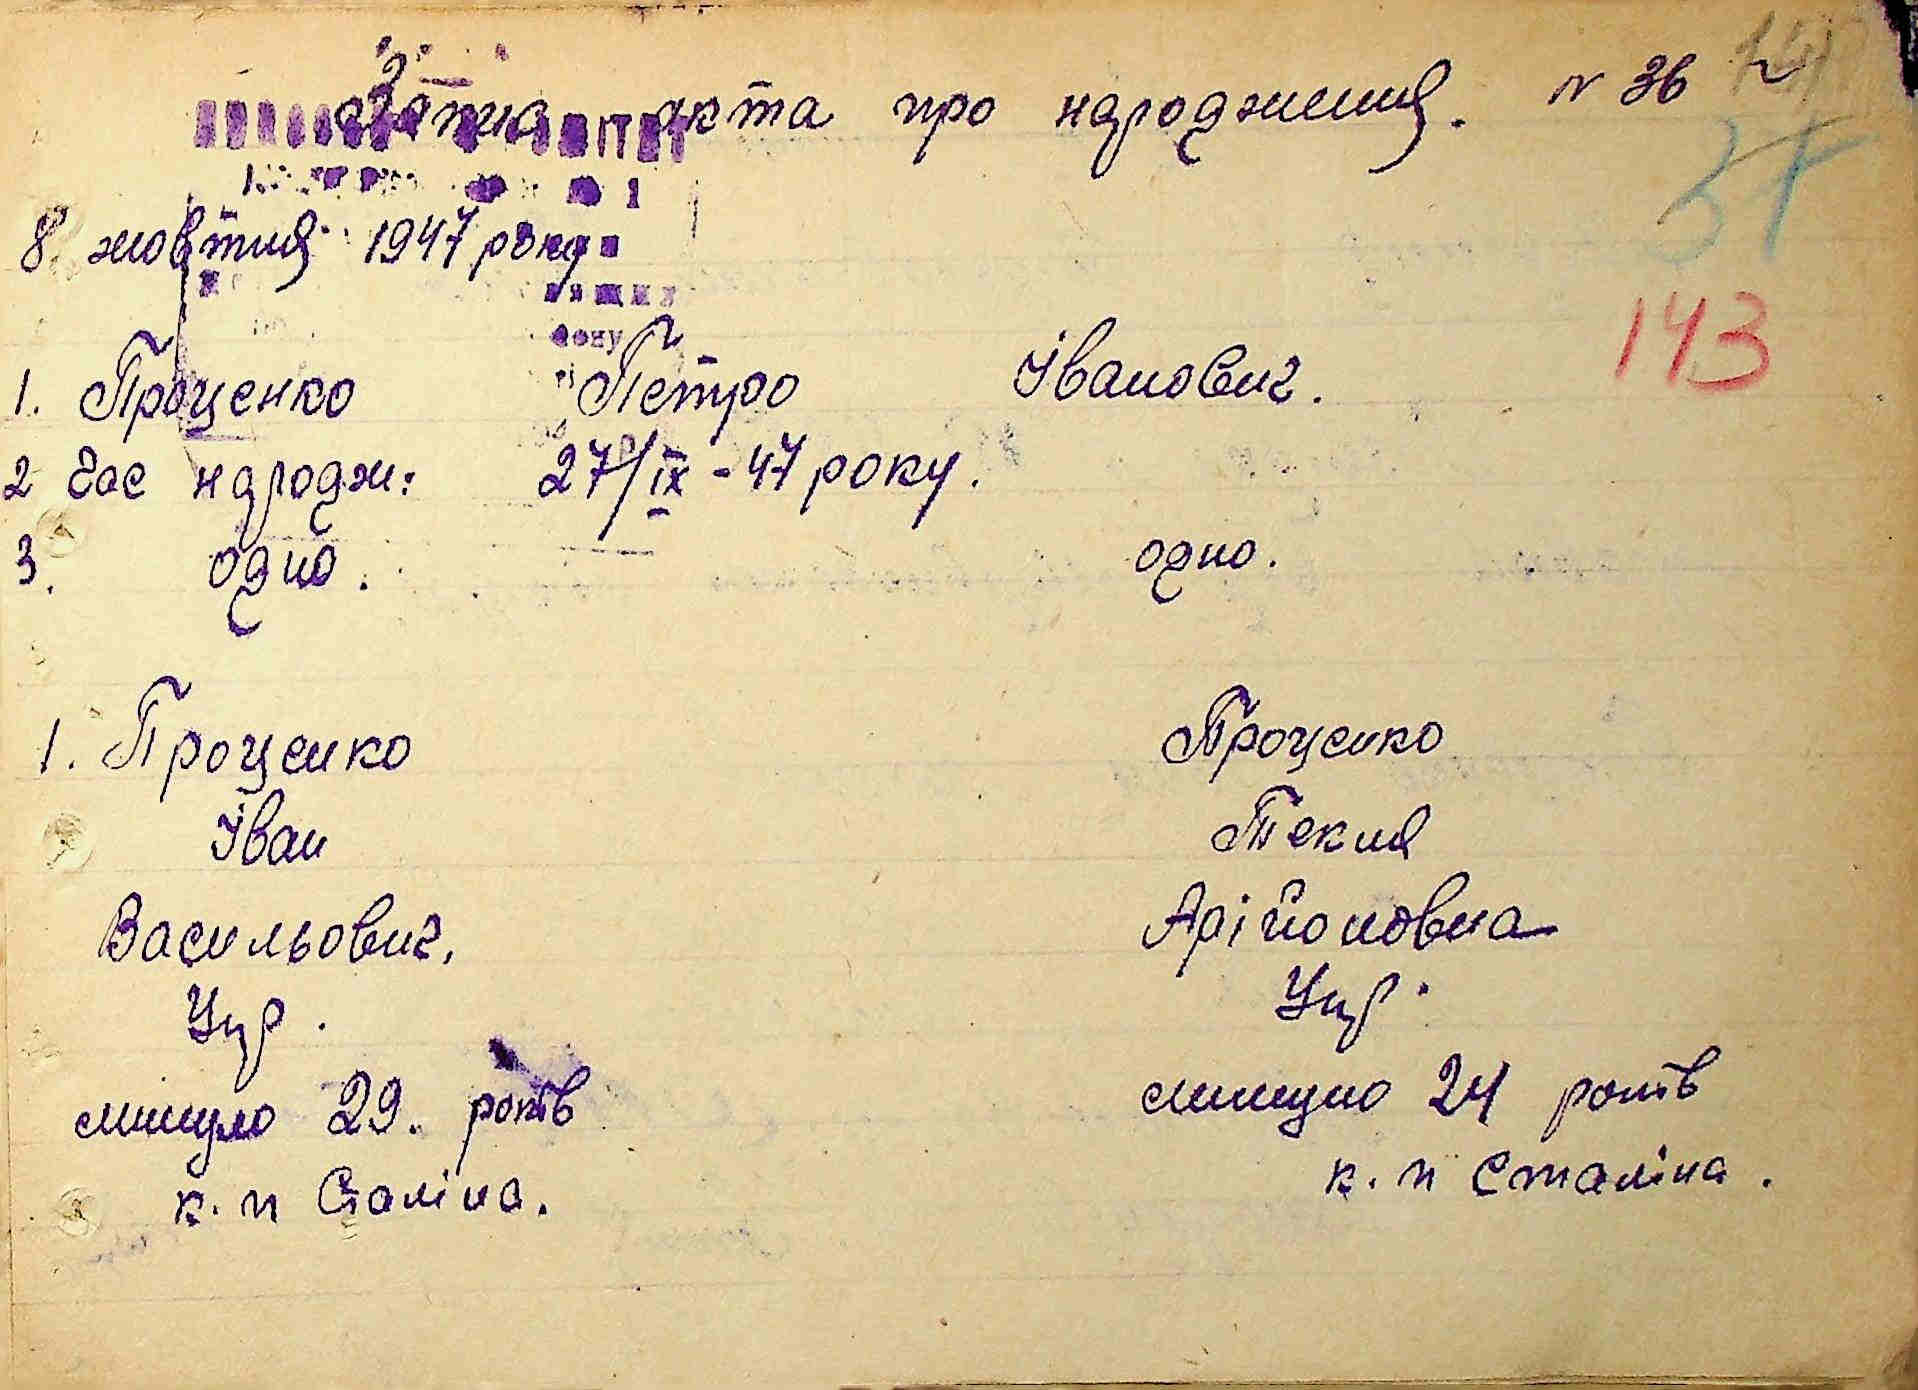 Запис акта про народження. N 36
37
8 жовтня 1947 року
143
1. Проценко Петро Іванович.
2 Час народж: 27/IX - 47 року.
3. одно. одно.
1. Проценко Проценко
Іван Текля
Васильович, Арійоновна
Укр. Укр.
минуло 29. років минуло 24 років
к. п Сталіна. к. п Сталіна.